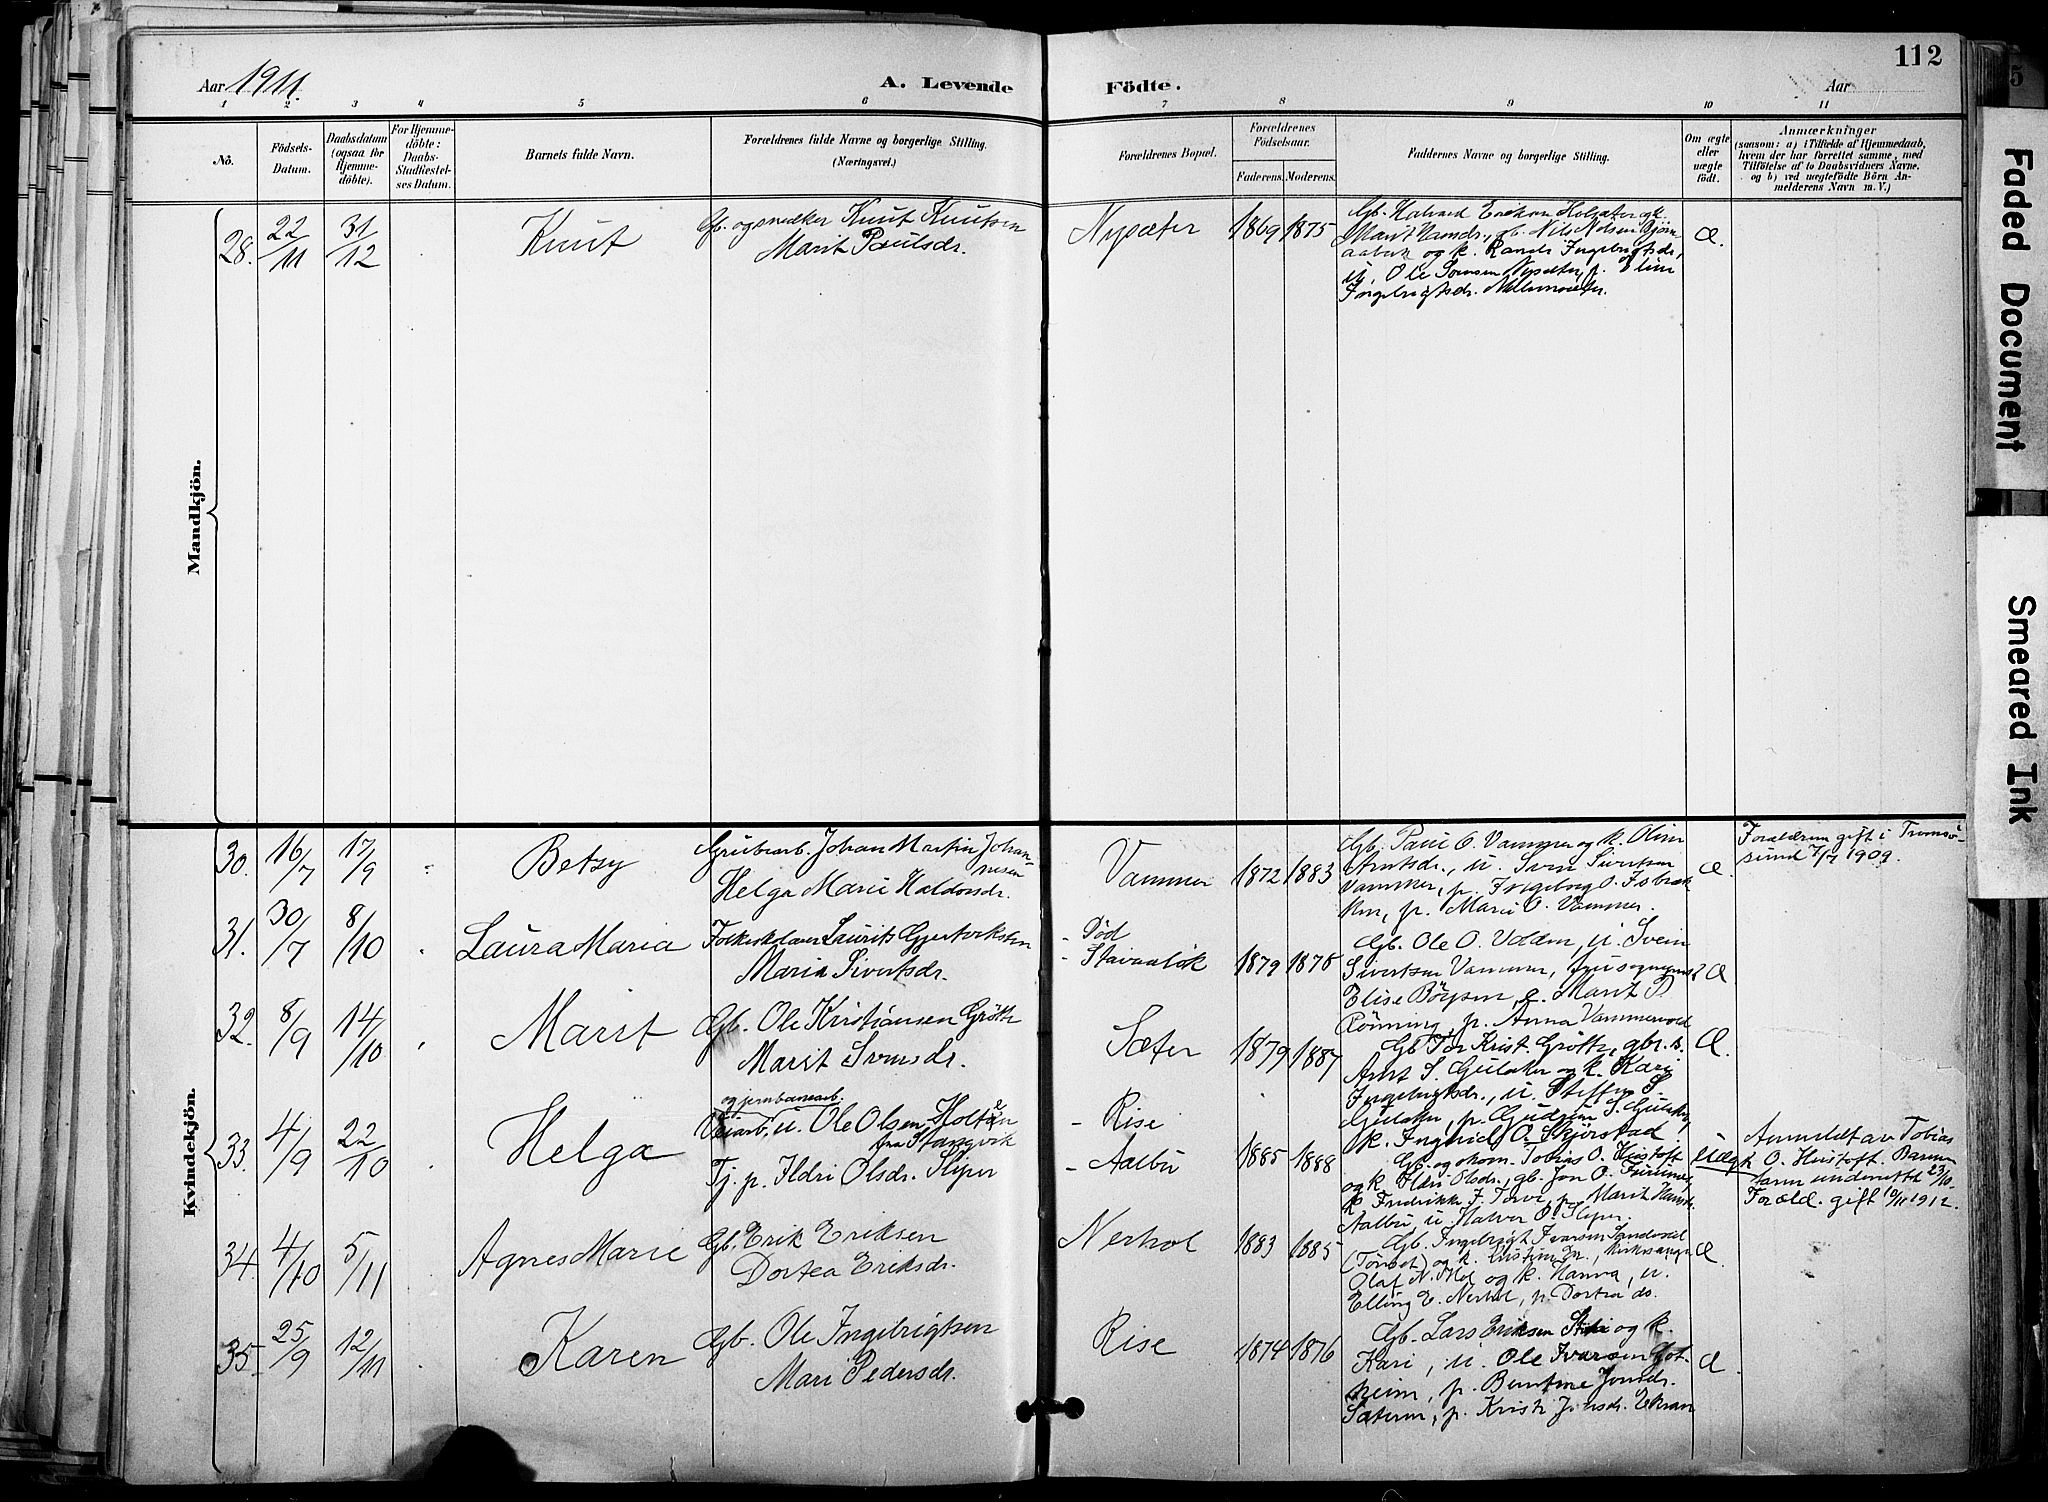 112
Aar 1911.
A. Levende Födte.
Aar
1 2 3 4 5 6 7 8 9 10 11
No.
Födsels-
Datum.
Daabsdatum
(ogsaa for
Hjemme-
döbte).
For Hjemme-
döbte:
Daabs-
Stadfæstel-
ses Datum.
Barnets fulde Navn.
Forældrenes fulde Navne og borgerlige Stilling.
(Næringsvei.)
Forældrenes Bopæl.
Forældrenes
Födselsaar.
Faderens. Moderens.
Faddernes Navne og borgerlige Stilling.
Om ægte
eller
uægte
født.
Anmærkninger
(saasom: a) i Tilfælde af Hjemmedaab,
hvem der har forrettet samme, med
Tilföielse af to Daabsvidners Navne.
og b) ved uægtefödte Börn An-
melderens Navn m. V.)
Mandkjön.
28. 22/11 31/12 Knut
Gb. og snedker Knut Knutsen
Marit Paulsdr.
Nysæter 1869 1875
Gb. Halvard Eriksen Holsæter og k.
Marit gb. Nils Nilsen
og k. Randi Ingebrigtsdr.,
u. Ole Sørensen Nysæter, p.
Ingebrigtsdr.
Æ.
Kvindekjön.
30. 16/7 17/9 Betzy
Grubearb. Johan Martin Johan-
nesen
Helga Marie Haldorsdr.
Vammer 1872 1883
Gb. Paul O. Vammer og k. Oline
Arntsdr., u. Sven Sivertsen
Vammer, p. Ingeborg O.
p. Marie O. Vammer.
Æ.
Forældrene gift i Tromsö-
sund 7/7 1909.
31. 30/7 8/10 Laura Maria
Laurits
Maria Sivertsdr.
- Död
- Stavaalök 1879 1878
Gb. Ole O. Volden, u. Svein
Sivertsen Vammer,
Elise Börsen, Marit P
Rönning, p. Anna Vammervold
Æ
32. 8/9 14/10 Marit
Gb. Ole Kristiansen Grötte
Marit Svensdr.
Sæter 1879 1887
Gb Tor Krist. Grötte, gbr. s.
Arnt S. Gulaker og k. Kari
Ingebrigtsdr., u. Steffen S.
Gulaker, p. Gudrun S. Gulaker
k. Ingrid O. Skjörstad
Æ.
33. 4/9 22/10 Helga
og jernbanearb.
Veiarb. u. Ole Olsen Holten
fra Stangvik
Tj. p. Ildri Olsdr. Sliper
- Rise
- Aalbu 1885 1888
Gb. og skom. Tobias O. Hustoft
og k. Ildri Olsdr., gb. Jon O.
k. Fredrikke J. p. Marit
Aalbu, u. Halvor O. Sliper.
Uægte
Anmeldt av Tobias
O. Hustoft. Barne-
faren underrettet 23/10.
Foræld. gift 10/11 1912.
34. 4/10 5/11 Agnes Marie
Gb. Erik Eriksen
Dortea Eriksdr.
Nerhol 1883 1885
Gb. Ingebrigt Ivarsen
(Tönset) og k.
Olaf N. Mel og k. Hanna, u.
Elling E. Nerhol, p. Dortea do.
Æ.
35. 25/9 12/11 Karen
Gb. Ole Ingebrigtsen
Mari Pedersdr.
Rise 1874 1876
Gb. Lars Eriksen og k.
Kari, u. Ole Ivarsen Got-
heim, p. Berntine Jonsdr.
Sæteren, p. Kristi Jonsdr. Ekran
Æ.
Faded Document
Smeared Ink
5